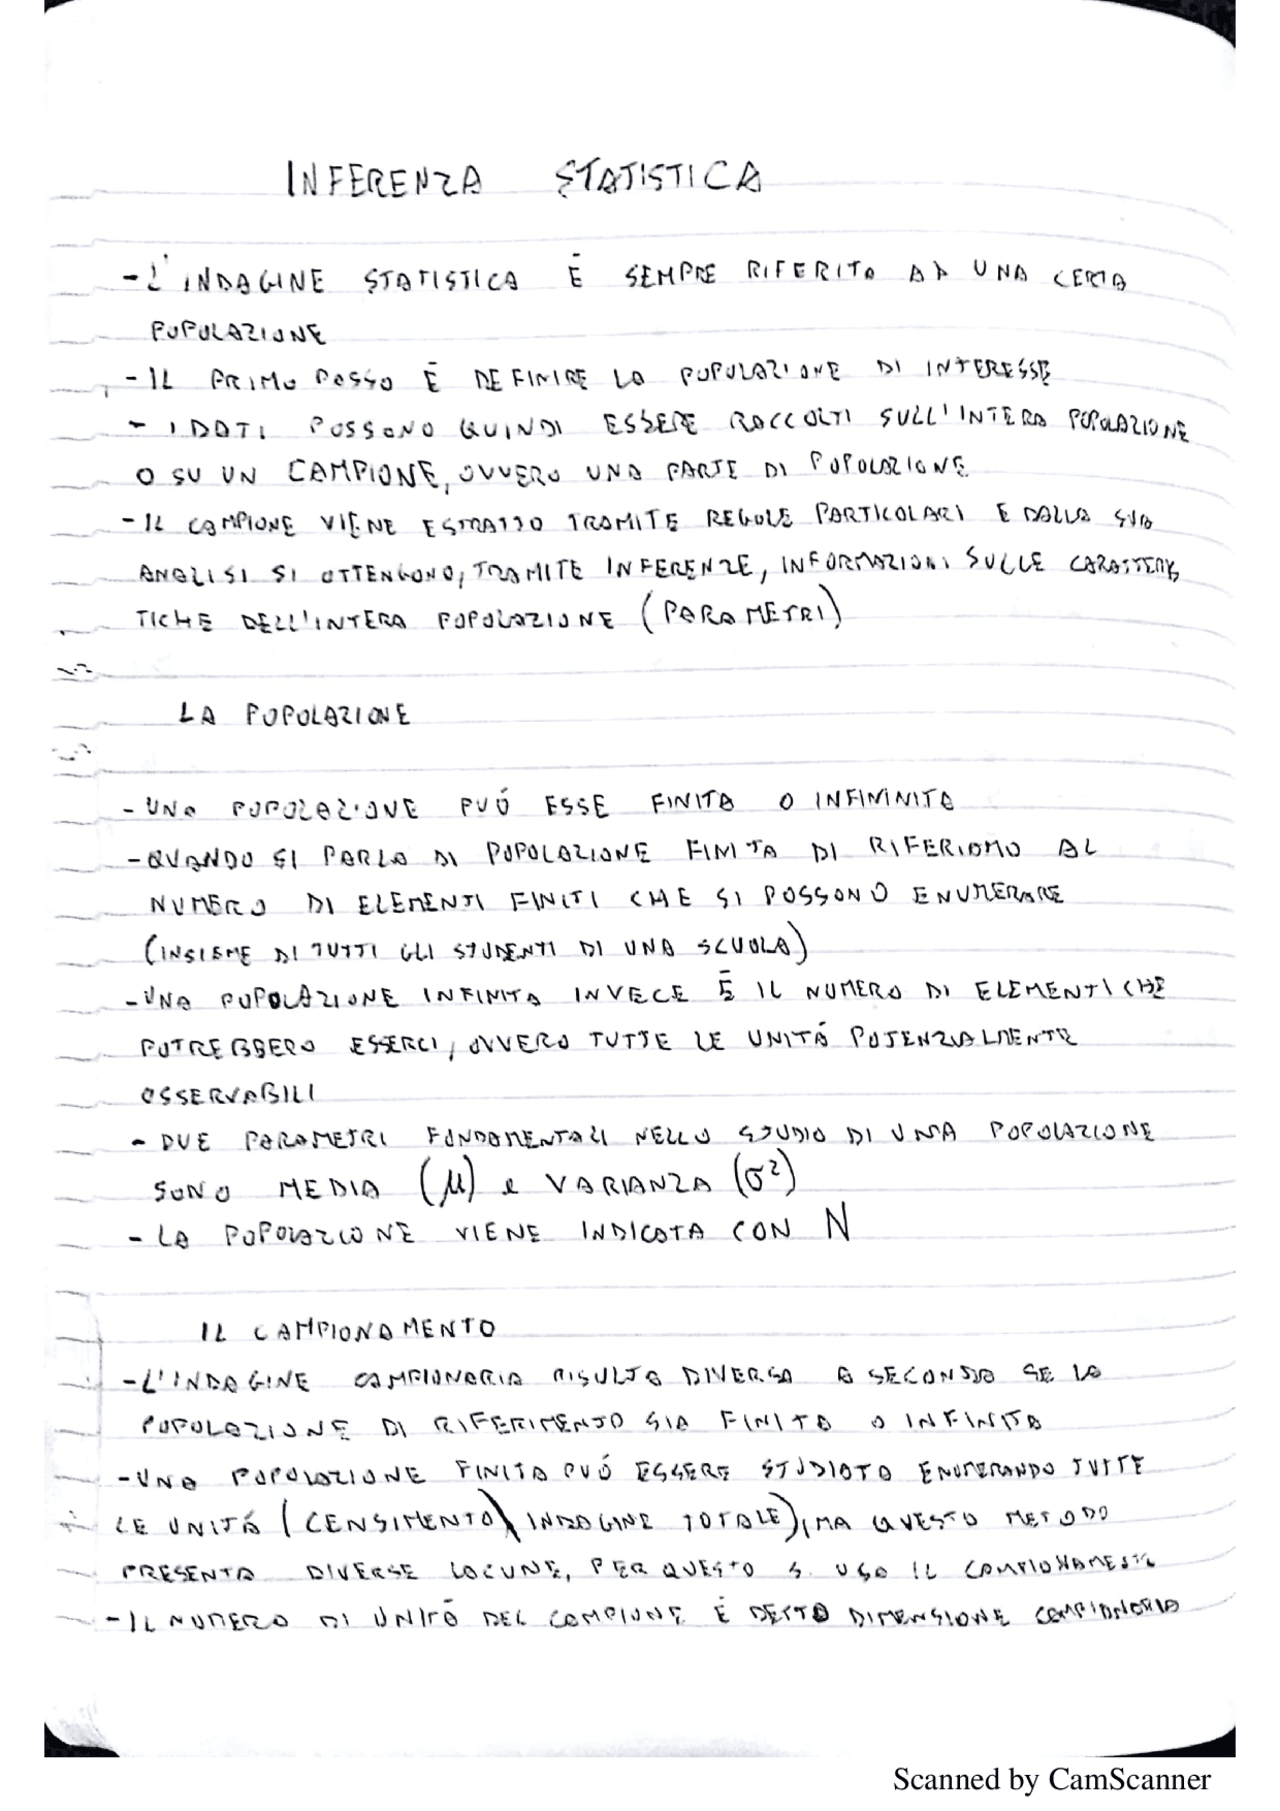 INFERENZA STATISTICA
- L'INDAGINE STATISTICA È SEMPRE RIFERITA AD UNA CERTA
POPOLAZIONE
- IL PRIMO PASSO È DEFINIRE LA POPOLAZIONE DI INTERESSE
- I DATI POSSONO QUINDI ESSERE RACCOLTI SULL'INTERA POPOLAZIONE
O SU UN CAMPIONE, OVVERO UNA PARTE DI POPOLAZIONE
- IL CAMPIONE VIENE ESTRATTO TRAMITE REGOLE PARTICOLARI E DALLA SUA
ANALISI SI OTTENGONO, TRAMITE INFERENZE, INFORMAZIONI SULLE CARATTERIS
TICHE DELL'INTERA POPOLAZIONE (PARAMETRI)
LA POPOLAZIONE
- UNA POPOLAZIONE PUÓ ESSE FINITA O INFININITA
- QUANDO SI PARLA DI POPOLAZIONE FINITA DI RIFERIAMO AL
NUMERO DI ELEMENTI FINITI CHE SI POSSONO ENUMERARE
(INSIEME DI TUTTI GLI STUDENTI DI UNA SCUOLA)
- UNA POPOLAZIONE INFINITA INVECE È IL NUMERO DI ELEMENTI CHE
POTREBBERO ESSERCI, OVVERO TUTTE LE UNITÁ POTENZIALMENTE
OSSERVABILI
- DUE PARAMETRI FONDAMENTALI NELLO STUDIO DI UNA POPOLAZIONE
SONO MEDIA (μ) e VARIANZA (σ²)
- LA POPOLAZIONE VIENE INDICATA CON N
IL CAMPIONAMENTO
- L'INDAGINE CAMPIONARIA RISULTA DIVERSA A SECONDA SE LA
POPOLAZIONE DI RIFERIMENTO SIA FINITA O INFINITA
- UNA POPOLAZIONE FINITA PUÓ ESSERE STUDIATA ENUMERANDO TUTTE
LE UNITÁ (CENSIMENTO\INDAGINE TOTALE), MA QUESTO METODO
PRESENTA DIVERSE LACUNE, PER QUESTO SI USA IL CAMPIONAMENTO
- IL NUMERO DI UNITÁ DEL CAMPIONE É DETTO DIMENSIONE CAMPIONARIA
Scanned by CamScanner